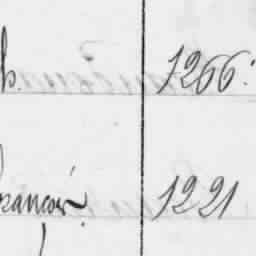 h. 1266.
François 1221